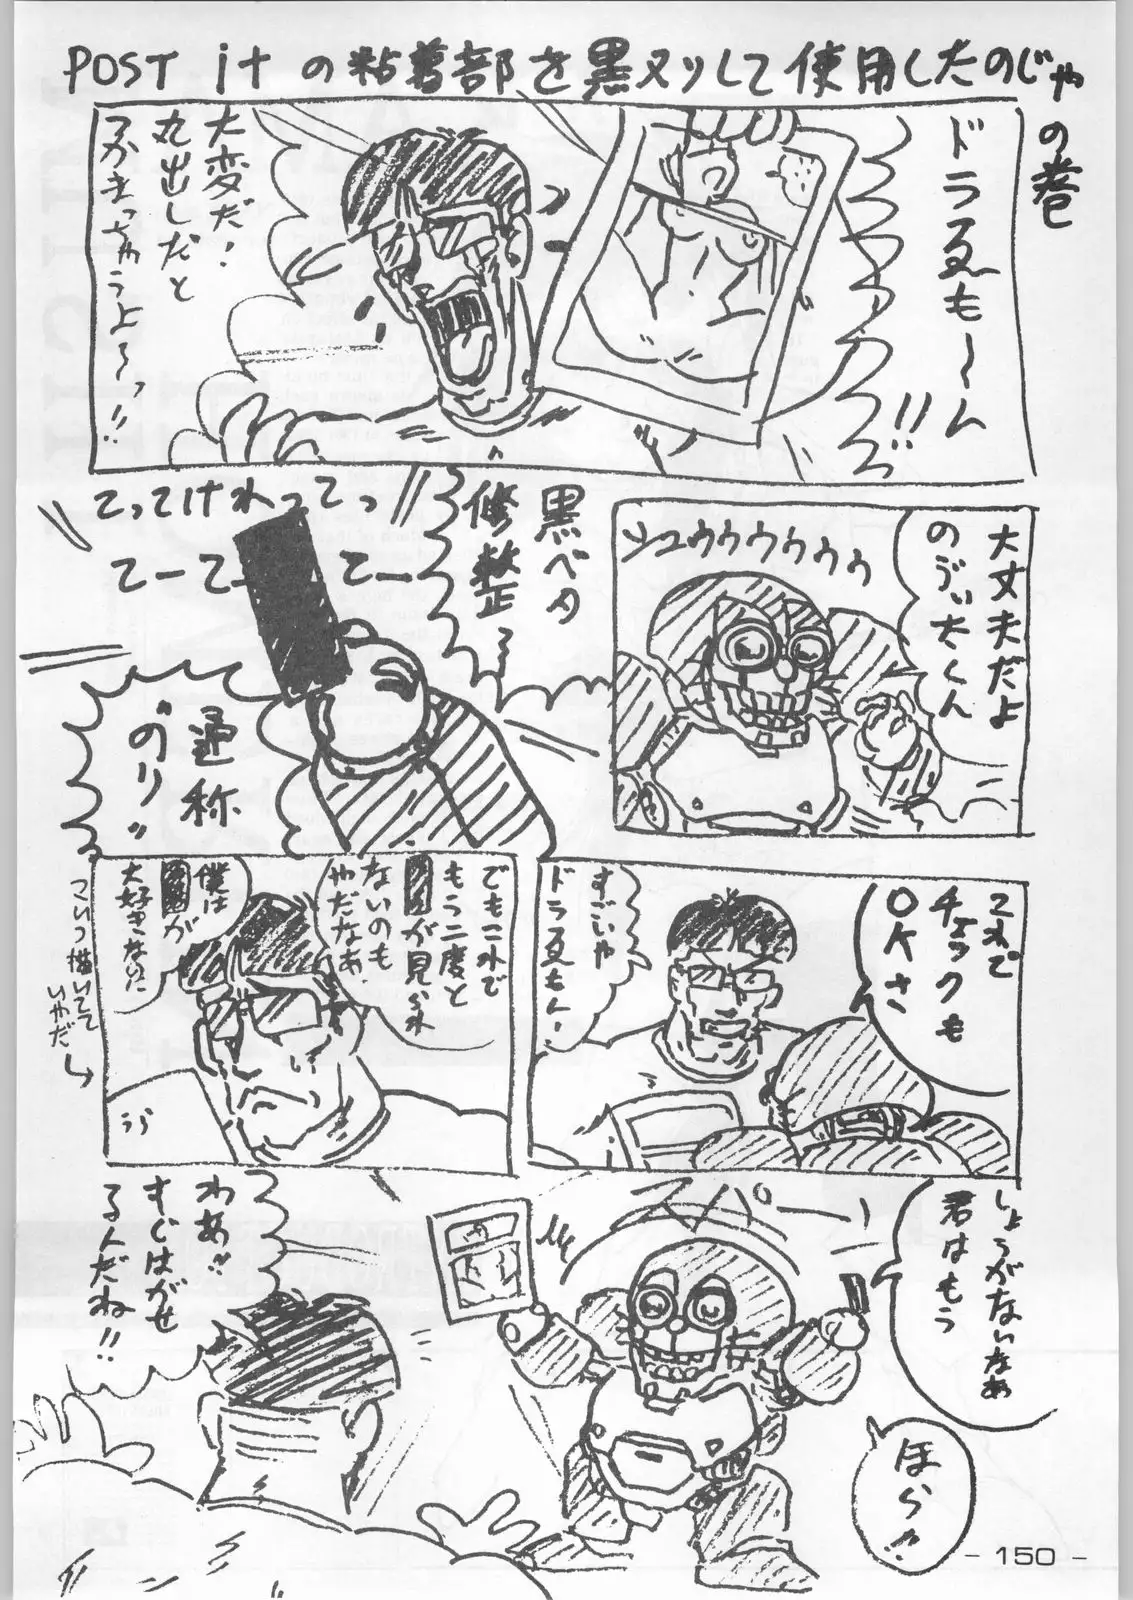 POST itの粘着部を黒ヌリして使用したのじゃの巻
ドラゑも〜ん!!
大変だ!
丸出しだと
つかまっちゃうよ〜っ!!
大丈夫だよ
のび太くん
シュゥゥゥゥゥゥ
黒ベタ
修整〜
てってけれってってっ
てーてーてー
通称
"のり"
これで
チェックも
OKさ
すごいや
ドラゑもん!
でもこれで
もう二度と
が見られ
ないのも
やだなぁ.
僕は
が
大好きなのに
こいつ描いてて
いやだ→
しょうがないなぁ
君はもう
スパーッ
ほら?
わあ!!
すぐはがせ
るんだね!!
- 150 -